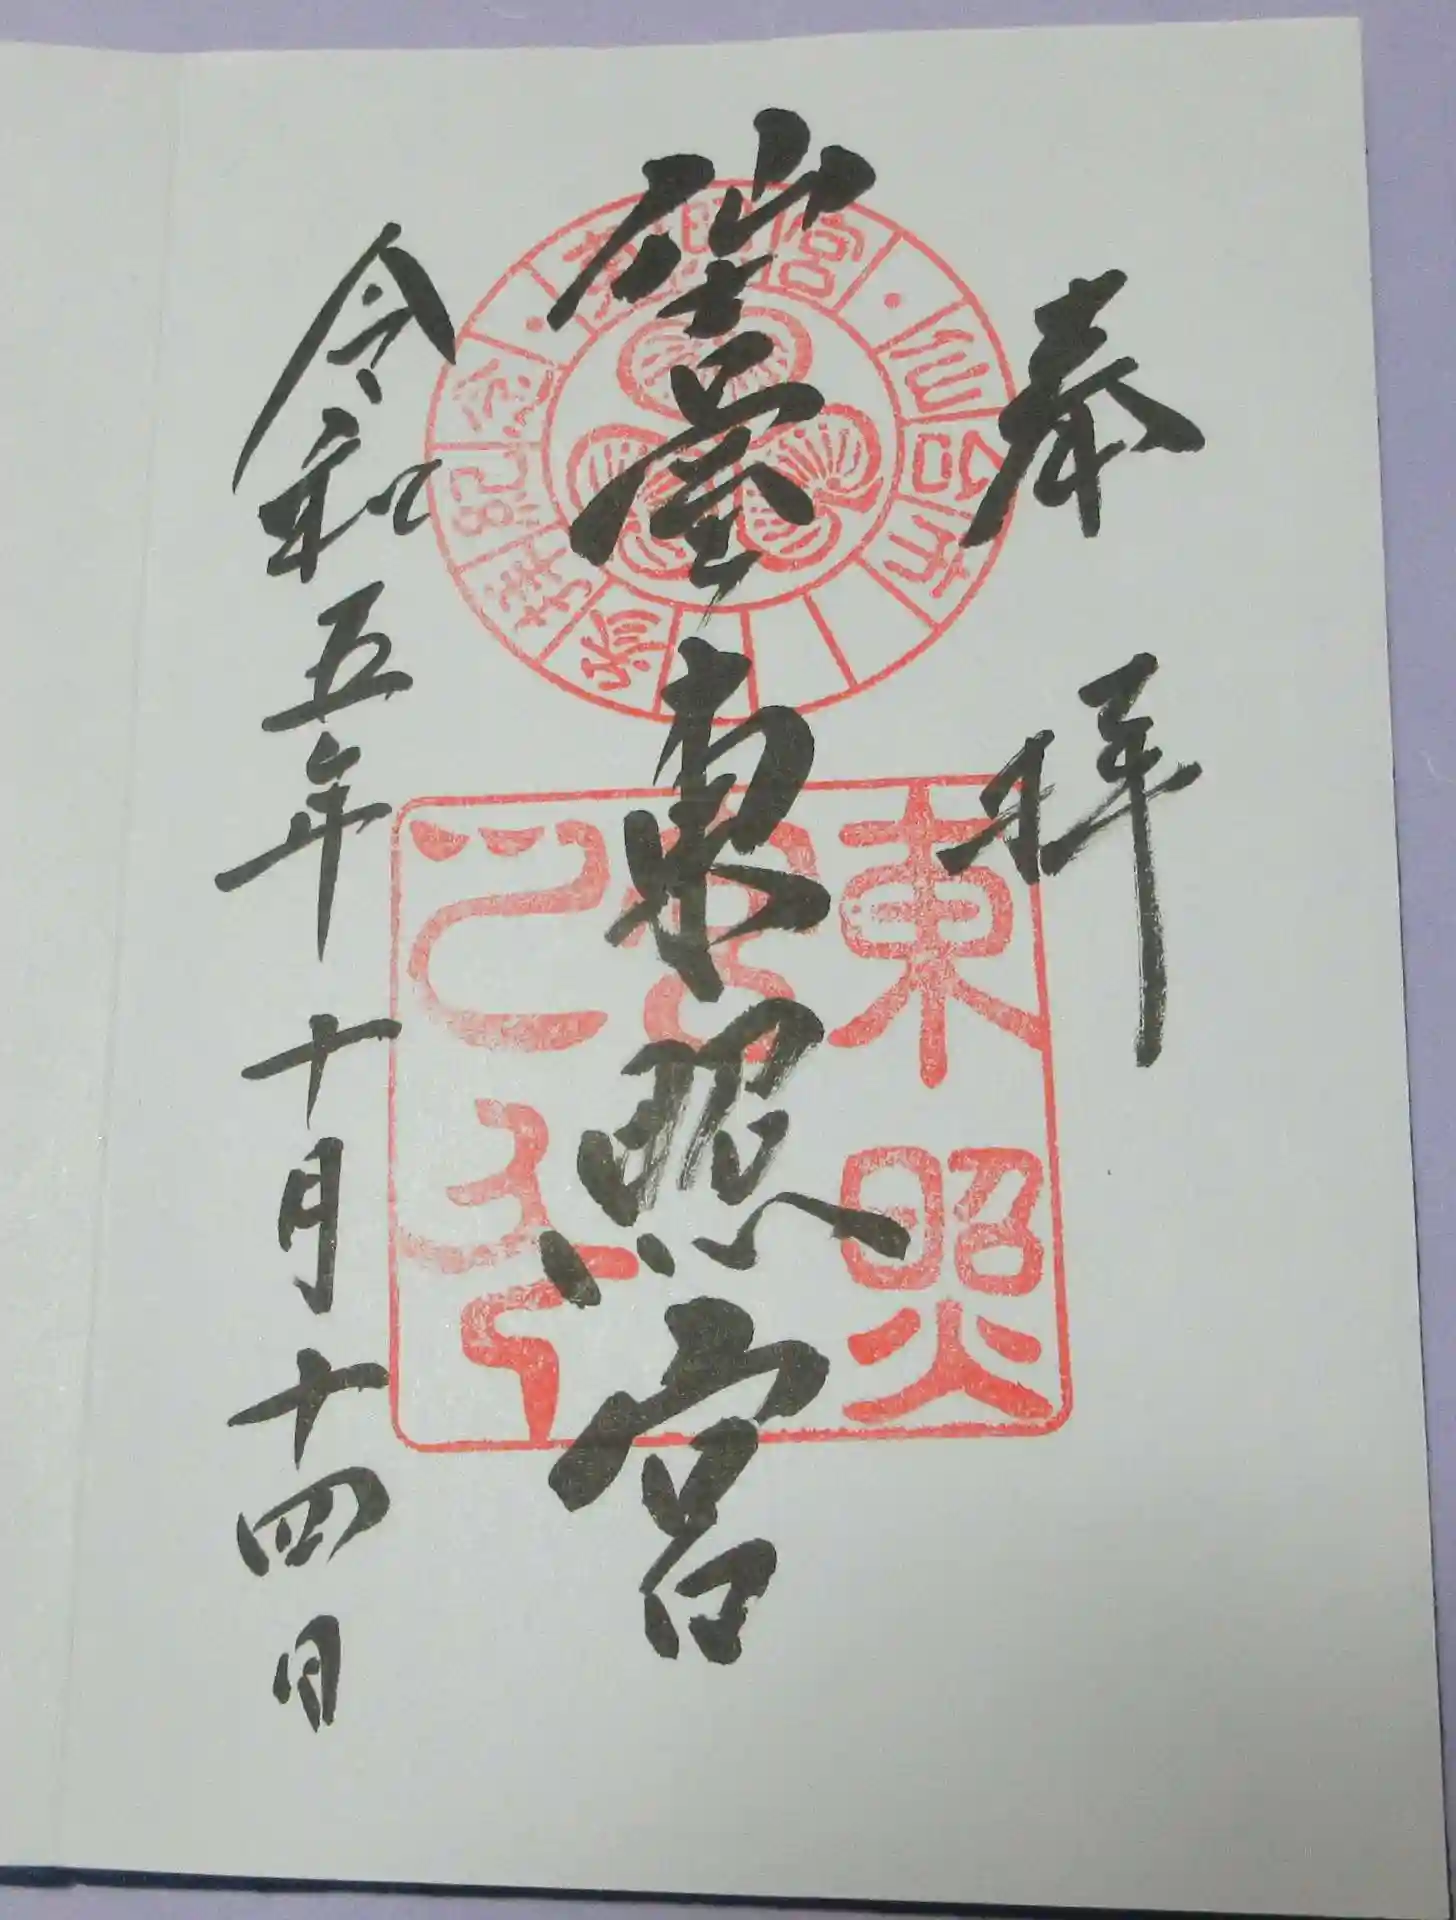 奉拝
臺東照宮
令和五年十月十四日
東照宮・仙台市
参拝記念
東照宮之印